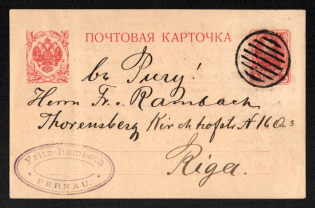 ПОЧТОВАЯ КАРТОЧКА
въ Ригу!
Herrn Fr. v. Rambach
Thorensberg Kirchhofstr. № 16 Q. 3
Riga.
Fritz Rambach
PERNAU.